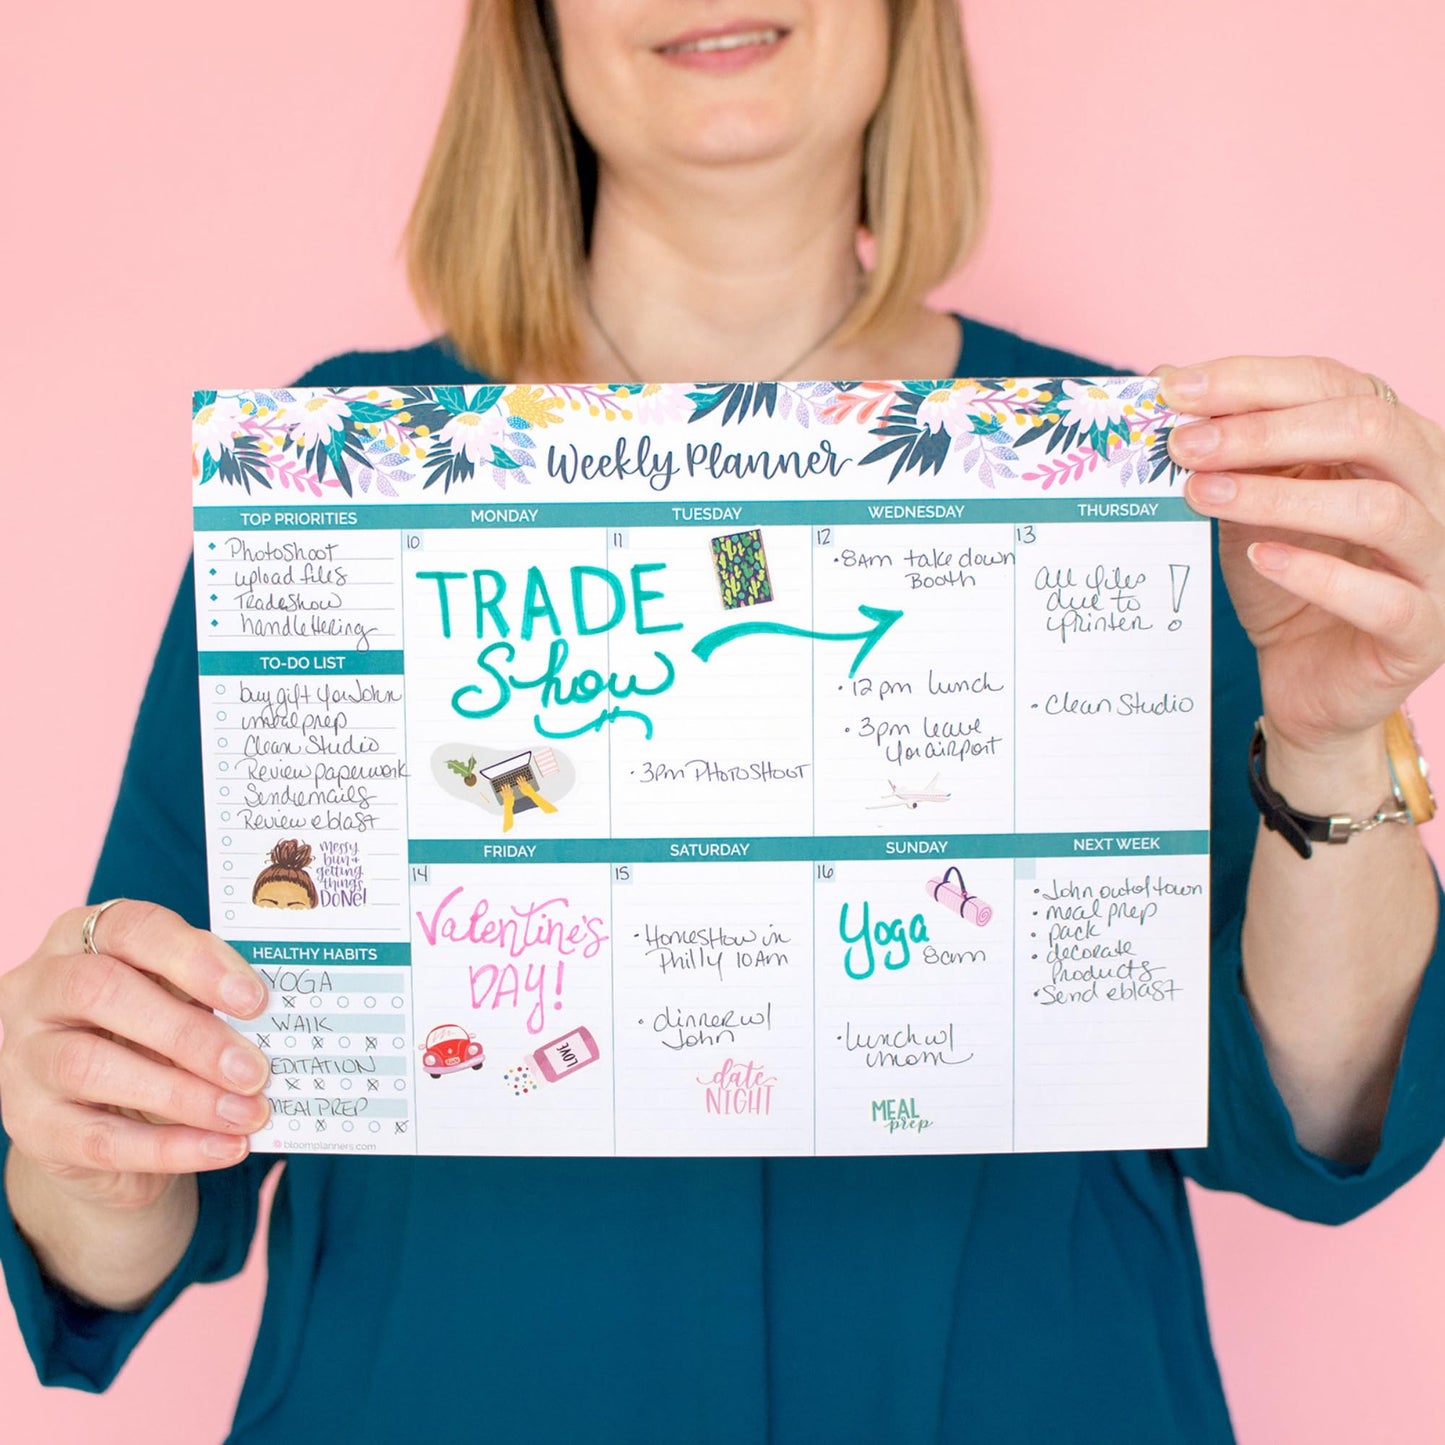 Weekly Planner
TOP PRIORITIES
PhotoShoot
upload files
TradeShow
handlettering
TO-DO LIST
buy gift for John
meal prep
Clean Studio
Review paperwork
Send emails
Review eblast
messy
bun +
getting
things
DONE!
HEALTHY HABITS
YOGA
WALK
EDITATION
MEAL PREP
bloomplanners.com
MONDAY
10
TRADE
Show
TUESDAY
11
• 3pm PHOTOSHOOT
WEDNESDAY
12
• 8am take down
Booth
• 12pm lunch
• 3pm leave
for airport
THURSDAY
13
All files
due to
printer!
• Clean Studio
FRIDAY
14
Valentine's
DAY!
LOVE
SATURDAY
15
• Homeshow in
Philly 10am
• dinner w/
John
date
NIGHT
SUNDAY
16
Yoga
8am
• lunch w/
mom
MEAL
prep
NEXT WEEK
• John out of town
• meal prep
• pack
• decorate
Products
• Send eblast